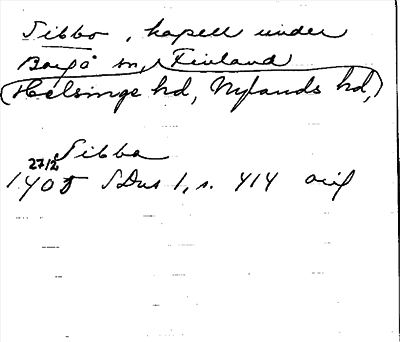 Sibbo, kapell under
Borgå sn, Finland
(Helsinge hd, Nylands hd,)
Sibba
27/2
1405 SDns 1, s. 414 orig